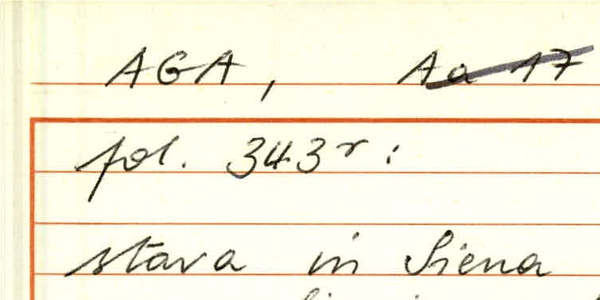 AGA, Aa 17
fol. 343r:
stava in Siena